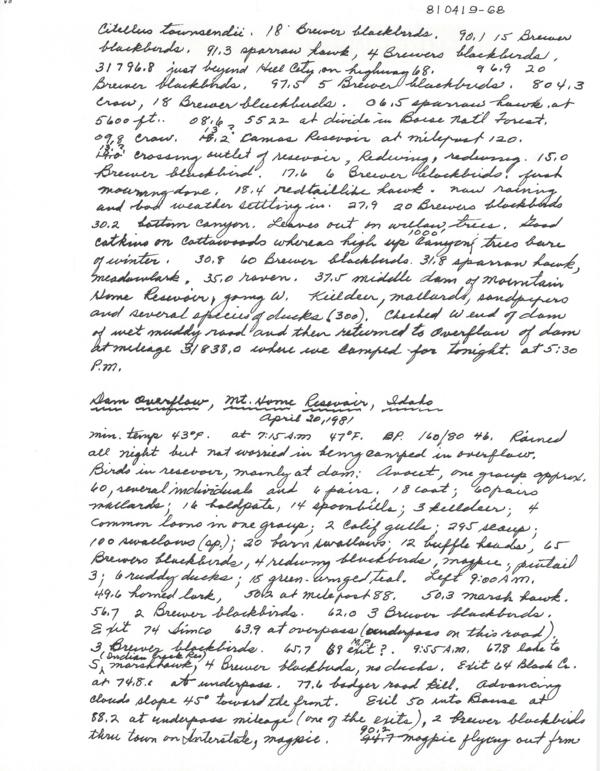 810419-68
Citellus townsendii. 18 Brewer blackbirds. 90.1 15 Brewer
blackbirds. 91.3 sparrow hawk, 4 Brewers blackbirds,
31796.8 just beyond Hill City on highway 68. 96.9 20
Brewer blackbirds. 97.5 5 Brewer blackbirds. 804.3
crow, 18 Brewer blackbirds. 06.5 sparrow hawk at
5600 ft.. 08.6, 5522 at divide in Boise Nat'l Forest.
09.8 crow. 13.2 Camas Resevoir at milepost 120.
crossing outlet of resevoir, Redwing, redwing. 15.0
Brewer blackbird. 17.6 6 Brewer blackbirds, first
mourning dove. 18.4 redtaillike hawk. now raining
and bad weather settling in. 27.9 20 Brewers blackbirds
30.2 bottom canyon. Leaves out on willow trees. Good
catkins on cottowoods whereas high up 1000' canyon trees bare
of winter. 30.8 60 Brewer blackbirds. 31.8 sparrow hawk,
meadowlark, 35.0 raven. 37.5 middle dam of Mountain
Home Resevoir, going W. Killdeer, mallards, sandpipers
and several species of ducks (300). Checked W end of dam
of wet muddy road and then returned to Overflow of dam
at mileage 31838.0 where we camped for tonight. at 5:30
P.M.
Dam Overflow, Mt. Home Resevoir, Idaho
April 20, 1981
min. temp 43°F. at 7:15 A.M 47°F. BP. 160/80 46. Rained
all night but not worried in being camped in overflow.
Birds in resevoir, mainly at dam: Avocet, one group approx.
60, several individuals and 6 pairs. 18 coot; 60 pairs
mallards; 16 baldpate, 14 spoonbills; 3 killdeer; 4
common loons in one group; 2 Calif gulls; 295 scaup;
100 swallows (sp.); 20 barn swallows; 12 buffle heads, 65
Brewers blackbirds, 4 redwing blackbirds, magpie, pintail
3; 6 ruddy ducks; 15 green-winged teal. Left 9:00 A.M.
49.6 horned lark, 50.2 at milepost 88. 50.3 marsh hawk.
56.7 2 Brewer blackbirds. 62.0 3 Brewer blackbirds.
Exit 74 Simco 63.9 at overpass (underpass on this road),
3 Brewer blackbirds. 65.7 69 M.P. exit?. 9:55 A.M. 67.8 lake to
S (Indian Creek Res) marsh hawk, 4 Brewer blackbirds, no ducks. Exit 64 Blacks Cr.
at 74.8 at underpass. 77.6 badger road kill. Advancing
clouds slope 45° toward the front. Exit 50 into Boise at
88.2 at underpass mileage (one of the exits), 2 Brewer blackbirds
thru town on Interstate, magpie. 90.2 magpie flying out frm